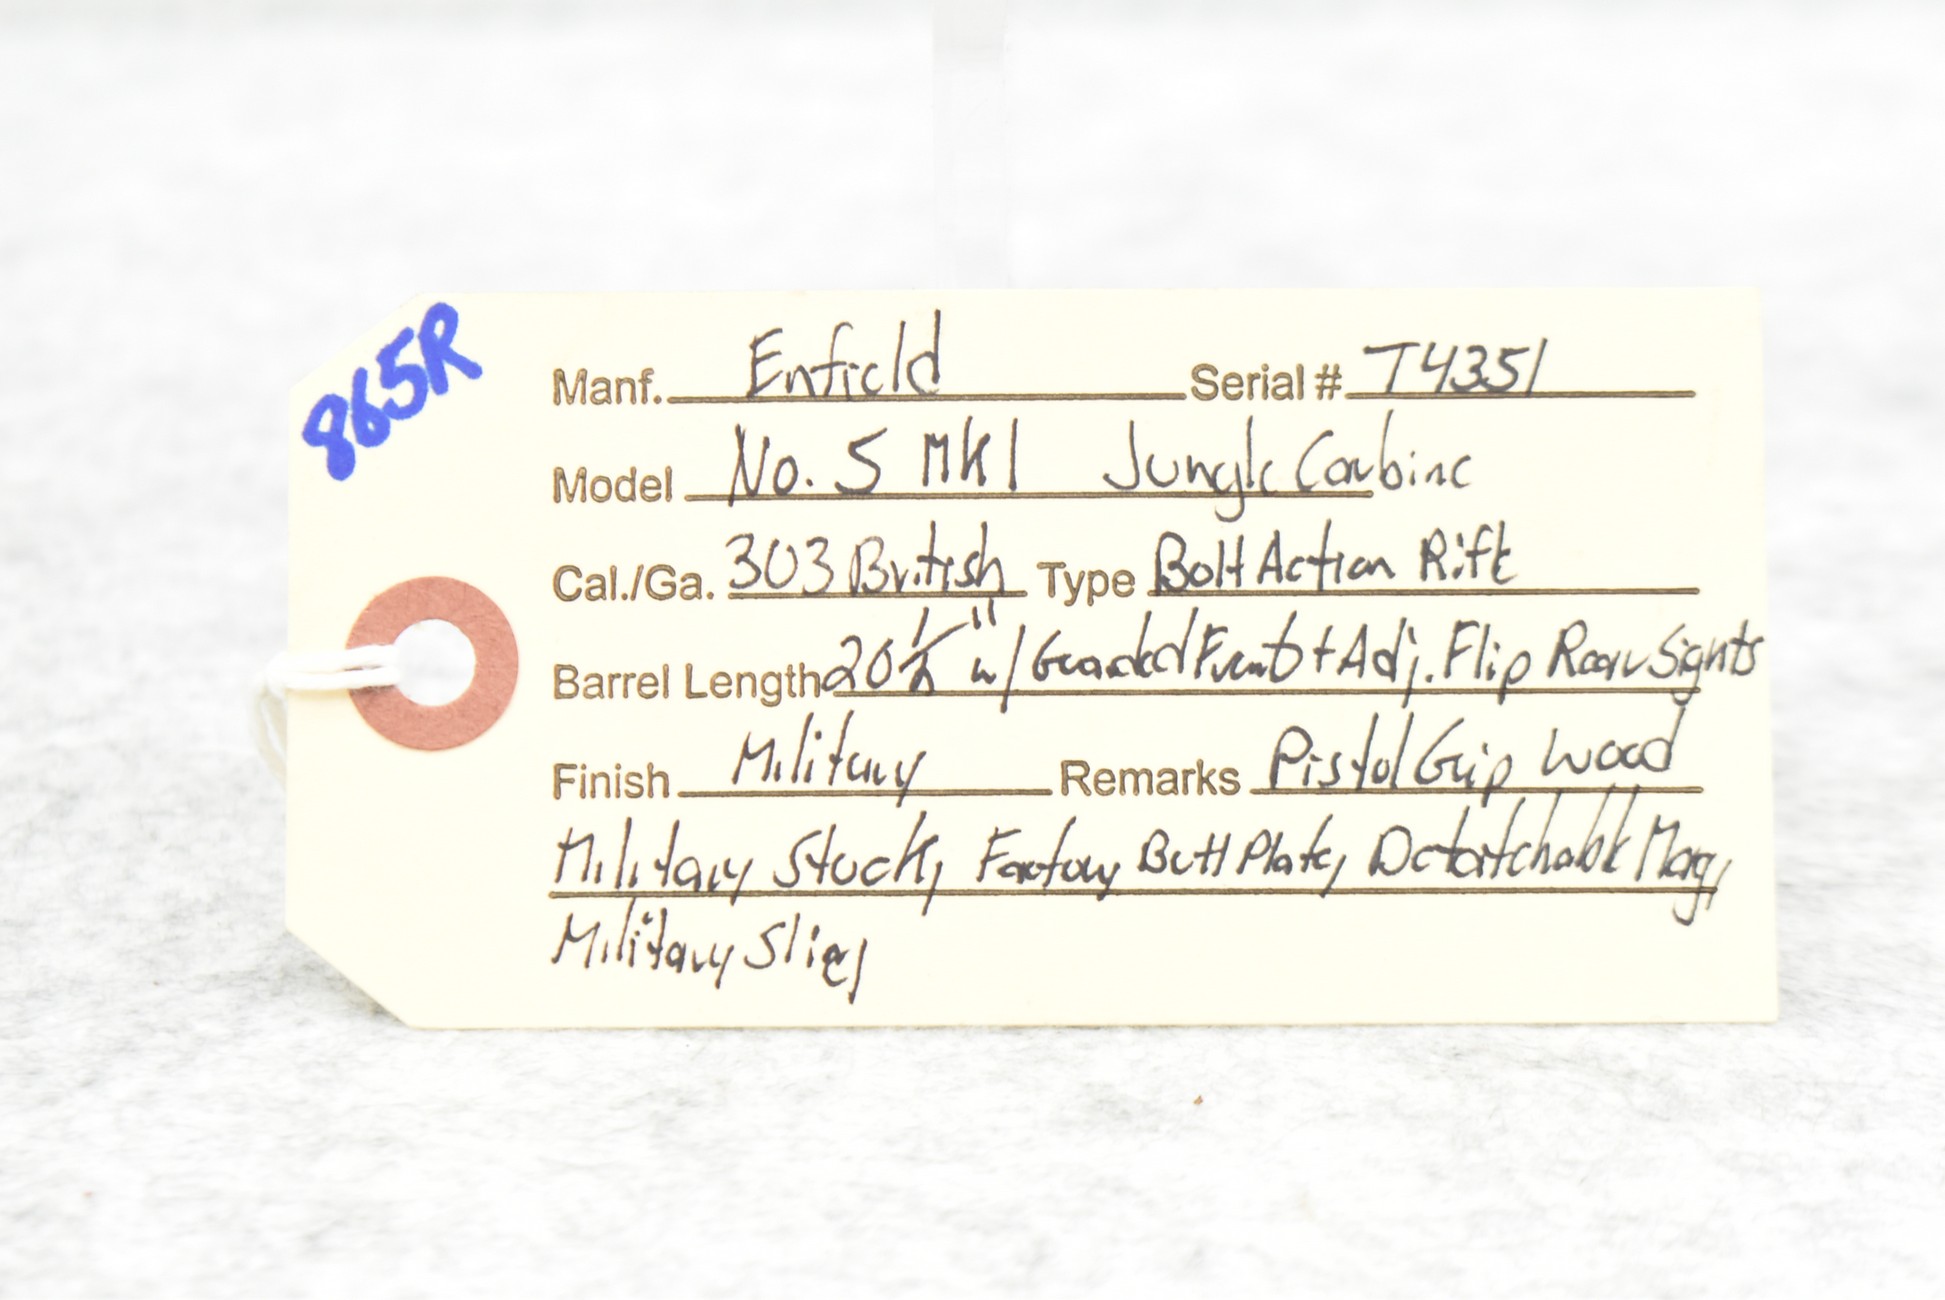 865R
Manf. Enfield Serial # T4351
Model No. 5 MK1 Jungle Carbine
Cal./Ga. 303 British Type Bolt Action Rifle
Barrel Length 20 1/2" w/ Guarded Front + Adj. Flip Rear Sights
Finish Military Remarks Pistol Grip Wood
Military Stock, Factory Butt Plate, Detatchable Mag,
Military Sling